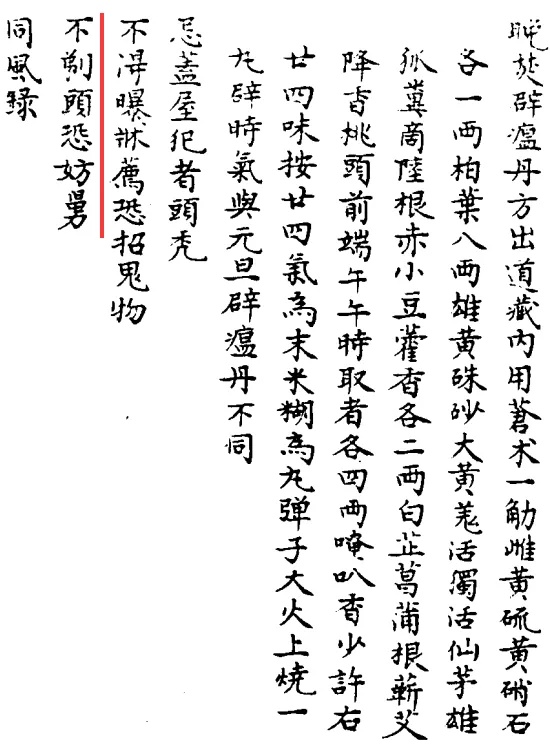 晚焚辟瘟丹方出道藏內用蒼术一觔雌黄硫黄硝石
各一両柏葉八両雄黄硃砂大黄羗活獨活仙茅雄
狐糞啇陸根赤小豆藿香各二両白芷菖蒲根蘄艾
降香桃頭前端午午時取者各四両唵叭香少許右
廿四味按廿四氣為末米糊為丸弹子大火上燒一
丸辟時氣與元旦辟瘟丹不同
忌蓋屋犯者頭禿
不淂曝牀薦恐招鬼物
不剃頭恐妨舅
同風録